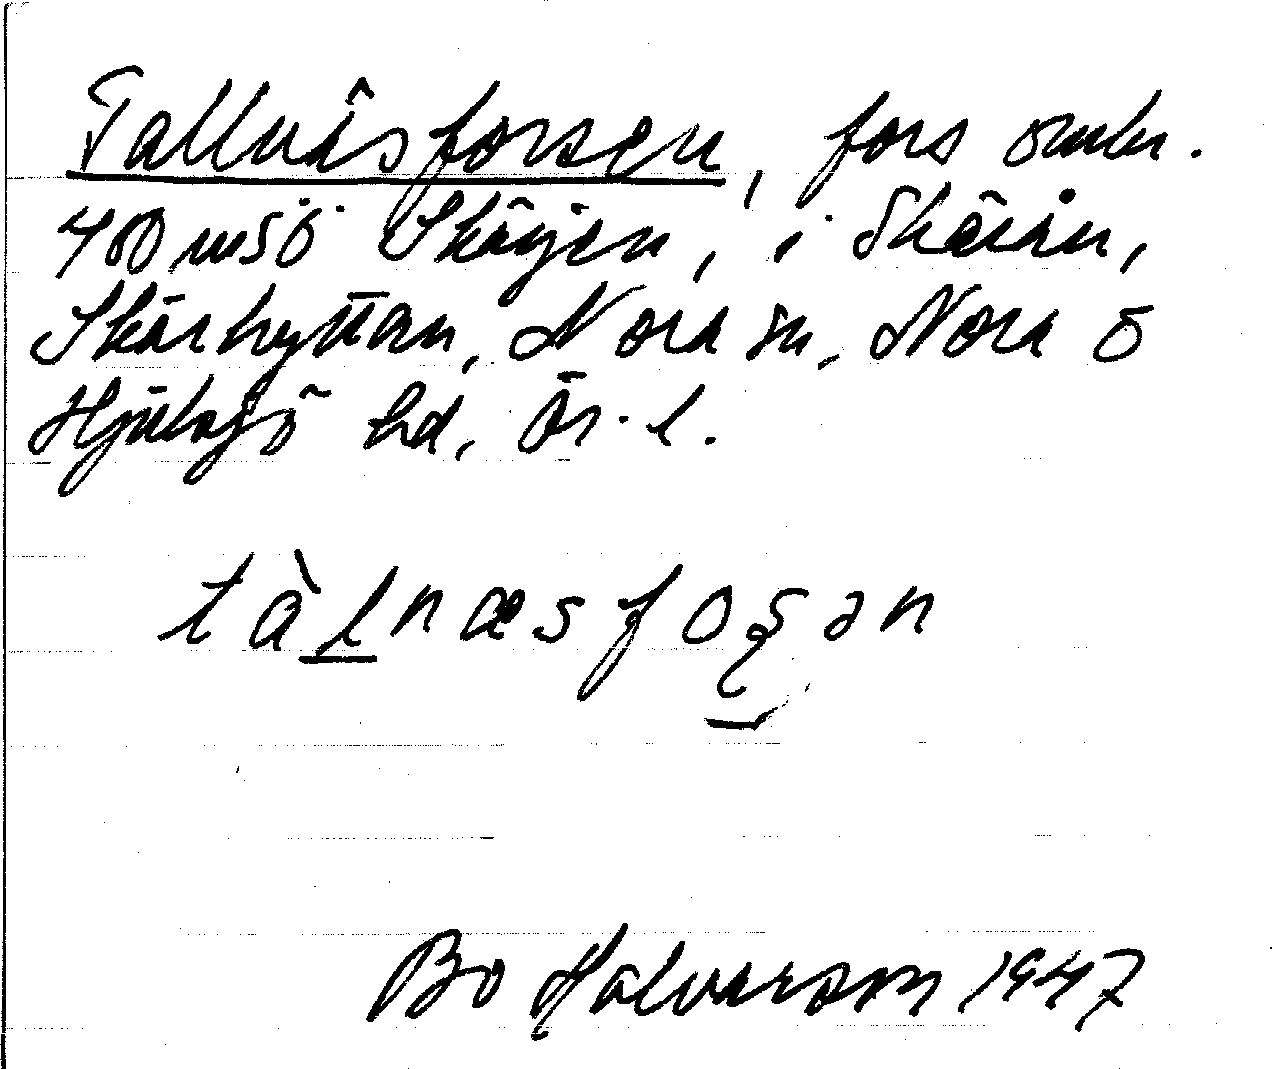 Tallnäsforsen, fors omkr.
400 m SÖ Skärjen, i Skärån,
Skärhyttan, Nora sn, Nora o
Hjulsjö hd, Ör. l.
tàlnæsfoʂən
Bo Halvarson 1947